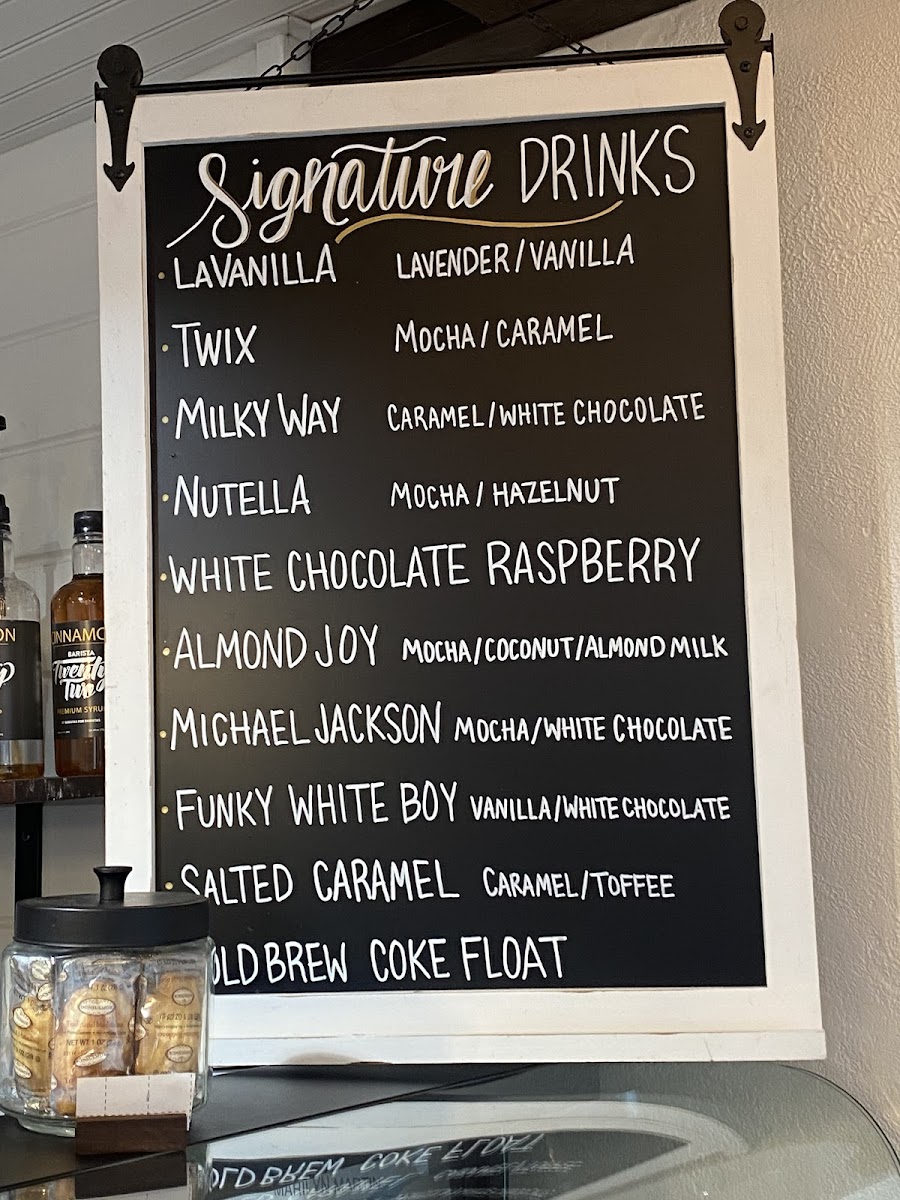 Signature DRINKS
LAVANILLA LAVENDER/VANILLA
TWIX MOCHA/CARAMEL
MILKY WAY CARAMEL/WHITE CHOCOLATE
NUTELLA MOCHA/HAZELNUT
WHITE CHOCOLATE RASPBERRY
ALMOND JOY MOCHA/COCONUT/ALMOND MILK
MICHAEL JACKSON MOCHA/WHITE CHOCOLATE
FUNKY WHITE BOY VANILLA/WHITE CHOCOLATE
SALTED CARAMEL CARAMEL/TOFFEE
OLD BREW COKE FLOAT
ON
INNAMO
BARISTA
Twenty
Two
PREMIUM SYRU
NET WT 1 OZ
OLD BREW COKE FLOAT